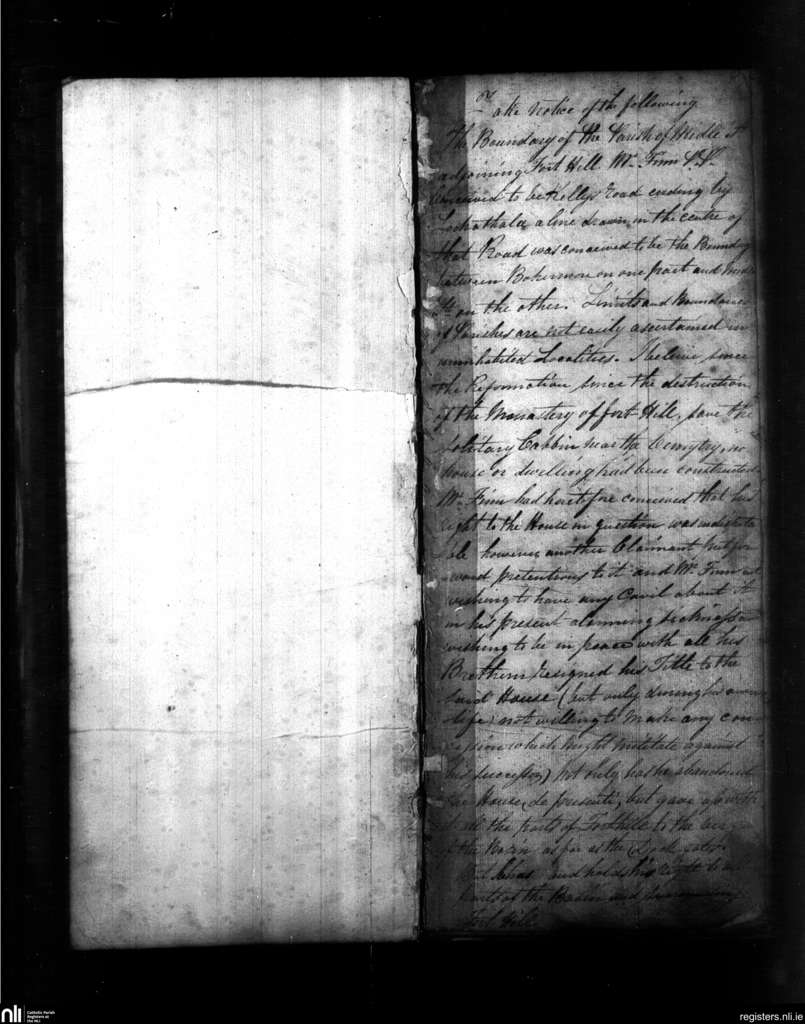 Take Notice of the following
The Boundary of the Parish of Middle
adjoining Fort Hill Mr. Finn P.P.
conceived to be Kellys road ending by
a line drawn in the centre of
that Road was conceived to be the Boundry
between Bohermore on one part and
on the other. Limits and Boundaries
of Parishes are not easily ascertained in
uninhabited Localities. I believe since
the Reformation since the destruction
of the Monastery of fort Hill, save the
solitary Cabbin near the Cemytry, no
house or dwelling had been constructed
Mr. Finn had heretofore conceived that his
right to the House in question was indisputa
ble however another Claimant put for
ward pretentions to it and Mr. Finn not
wishing to have any Cavil about it
in his present alarming sickness
wishing to be in peace with all his
Brethern resigned his Title to the
said House (but only during his own
life) not willing to make any con
cession which might militate against
his successor) not only has he abandoned
the House, de presenti, but gave up
all the parts of Forthill to the
of the Basin as far as the Lock gates
and holds his right to
parts of the Basin and
Fort Hill
nli
Catholic Parish
Registers at
the NLI
registers.nli.ie